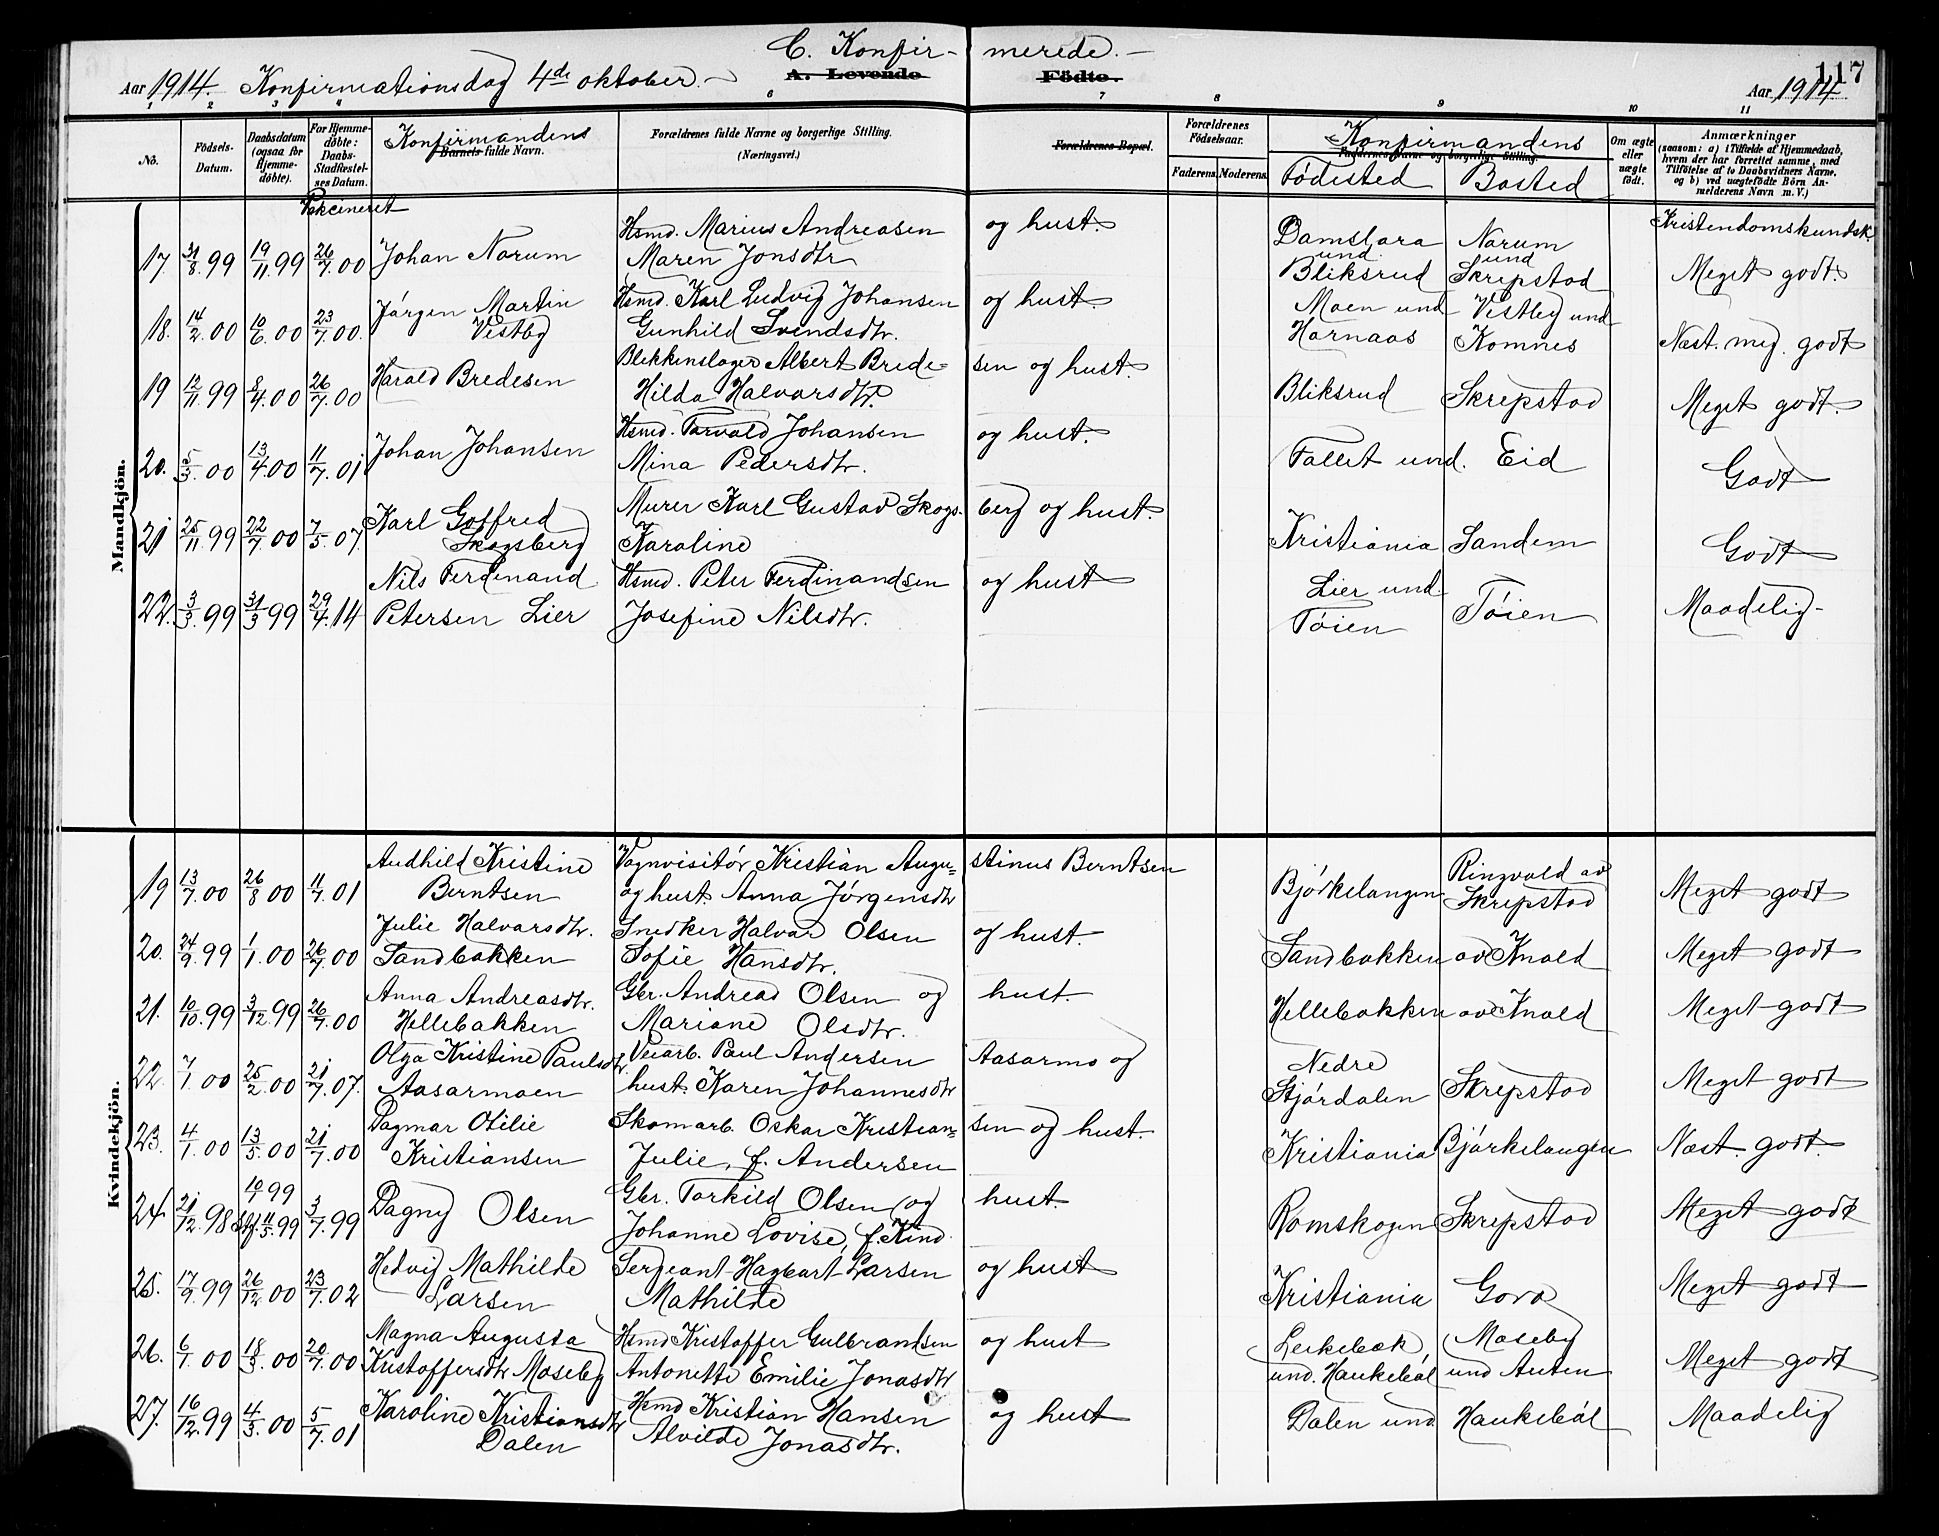 C. Konfir- merede.-
Aar 1914. Konfirmationsdag 4de oktober.- A. Levende Födte. Aar 1914 117
1 2 3 4 6 7 8 9 10 11
No. Födsels-Datum. Daabsdatum (ogsaa for Hjemme-döbte). For Hjemme-döbte: Daabs-Stadfæstel-ses Datum. Konfirmandens Barnets fulde Navn. Forældrenes fulde Navne og borgerlige Stilling. (Næringsvei.) Forældrenes Bopæl. Forældrenes Födselsaar. Faderens. Moderens. Konfirmandens Faddernes Navne og borgerlige Stilling. Födested Bosted Om ægte eller uægte födt. Anmærkninger (saasom: a) i Tilfælde af Hjemmedaab, hvem der har forrettet samme, med Tilföielse af to Daabsvidners Navne, og b) ved uægtefödte Börn An-melderens Navn m. V.)
Vakcineret Kristendomskundsk.
Mandkjön.
17 31/8.99 19/11.99 26/7.00 Johan Narum Hsmd. Marius Andreasen og hust.
Maren Jonsdtr Damslora und. Bliksrud Narum und Skrepstad Meget godt.
18. 14/2.00 10/6.00 23/7.00. Jörgen Martin Vestby Hsmd. Karl Ludvig Johansen og hust.
Gunhild Svendsdtr. Moen und Harnaas Vestby und Komnes Næst. meg. godt
19 12/11.99 8/4.00 26/7.00 Harald Bredesen Blikkenslager Albert Brede= sen og hust.
Hilda Halvorsdtr. Bliksrud Skrepstad Meget godt.
20. 5/3.00 13/4.00 11/7.01 Johan Johansen Hsmd. Torvald Johansen og hust.
Mina Pedersdtr. Fallet und. Eid Godt
21 25/11.99 22/7.00 7/5.07 Karl Gotfred Skogsberg Murer Karl Gustav Skogs- berg og hust.
Karoline Kristiania Sandem Godt
22. 3/3.99 31/3 99 29/4.14 Nils Ferdinand Petersen Lier Hsmd. Peter Ferdinandsen og hust
Josefine Nilsdtr. Lier und. Töien Töien Maadelig-
Kvindekjön.
19 13/7.00 26/8 00 11/7.01 Audhild Kristine Berntsen Vognvisitör Kristian Augu= stinus Berntsen
og hust. Anna Jörgensdtr Björkelangen Ringvold av Skrepstad Meget godt
20. 24/9.99 1/1.00 26/7.00 Julie Halvorsdtr. Sandbakken Snedker Halvor Olsen og hust.
Sofie Hansdtr. Sandbakken av Knold Meget godt
21. 10/10.99 3/12.99 26/7.00 Anna Andreasdtr. Hellebakken Gbr. Andreas Olsen og hust.
Mariane Olsdtr. Hellebakken av Knold Meget godt
22. 7/1.00 25/2.00 21/7.07. Olga Kristine Paulsdtr. Aasarmoen Veiarb. Paul Andersen Aasarmo og
hust. Karen Johannesdtr Nedre Stjördalen Skrepstad Meget godt
23. 4/1.00 13/5.00 21/7.00 Dagmar Otilie Kristiansen Skomarb. Oskar Kristian= sen og hust.
Julie, f. Andersen Kristiania Björkelangen Næst. godt.
24 21/12.98 99 11/5.99 3/7.99 Dagny Olsen Gbr. Torkild Olsen og hust.
Johanne Lovise, f. Kind Romskogen Skrepstad Meget godt
25. 17/9.99 26/12 00 23/7.02 Hedvig Mathilde Larsen Sergeant Hagbart Larsen og hust
Mathilde Kristiania Goro Meget godt
26. 6/1.00 18/3.00 20/7.00 Magna Augusta Kristoffersdtr Moseby Hsmd Kristoffer Gulbrandsen og hust
Antonette Emilie Jonasdtr Lerkebæk, und. Haukeböl Moseby und Auten Meget godt
27. 16/12.99 4/3.00 5/7.01 Karoline Kristiansdtr Dalen Hsmd Kristian Hansen og hust
Alvilde Jonasdtr. Dalen und Haukeböl Maadelig